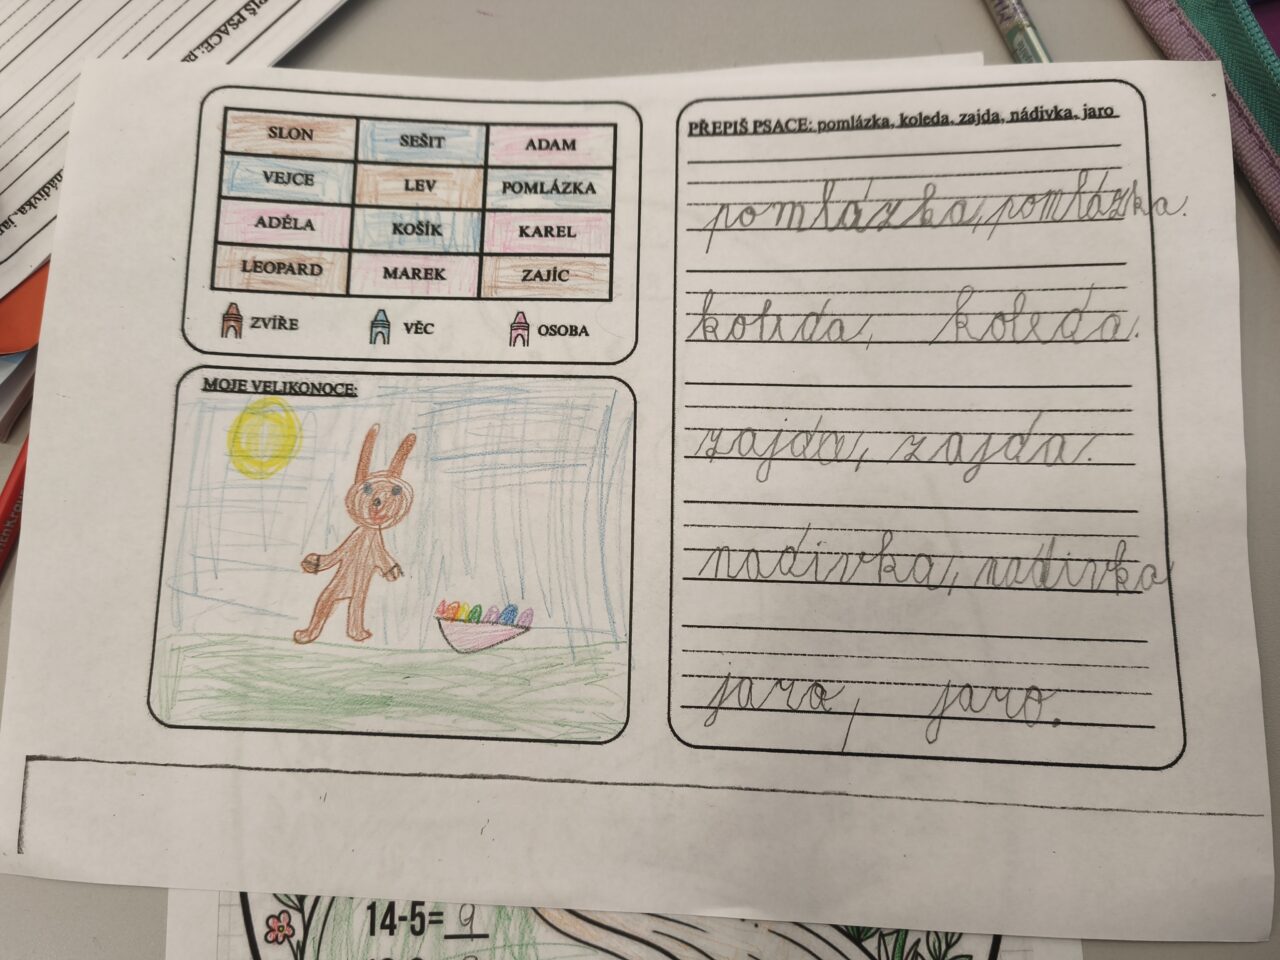 SLON SEŠIT ADAM
VEJCE LEV POMLÁZKA
ADÉLA KOŠÍK KAREL
LEOPARD MAREK ZAJÍC
ZVÍŘE VĚC OSOBA
MOJE VELIKONOCE:
PŘEPIŠ PSACE: pomlázka, koleda, zajda, nádivka, jaro
pomlázka, pomlázka.
koleda, koleda.
zajda, zajda.
nadivka, nadivka
jaro, jaro.
14-5=9
PIŠ PSACE:
nádivka, jar